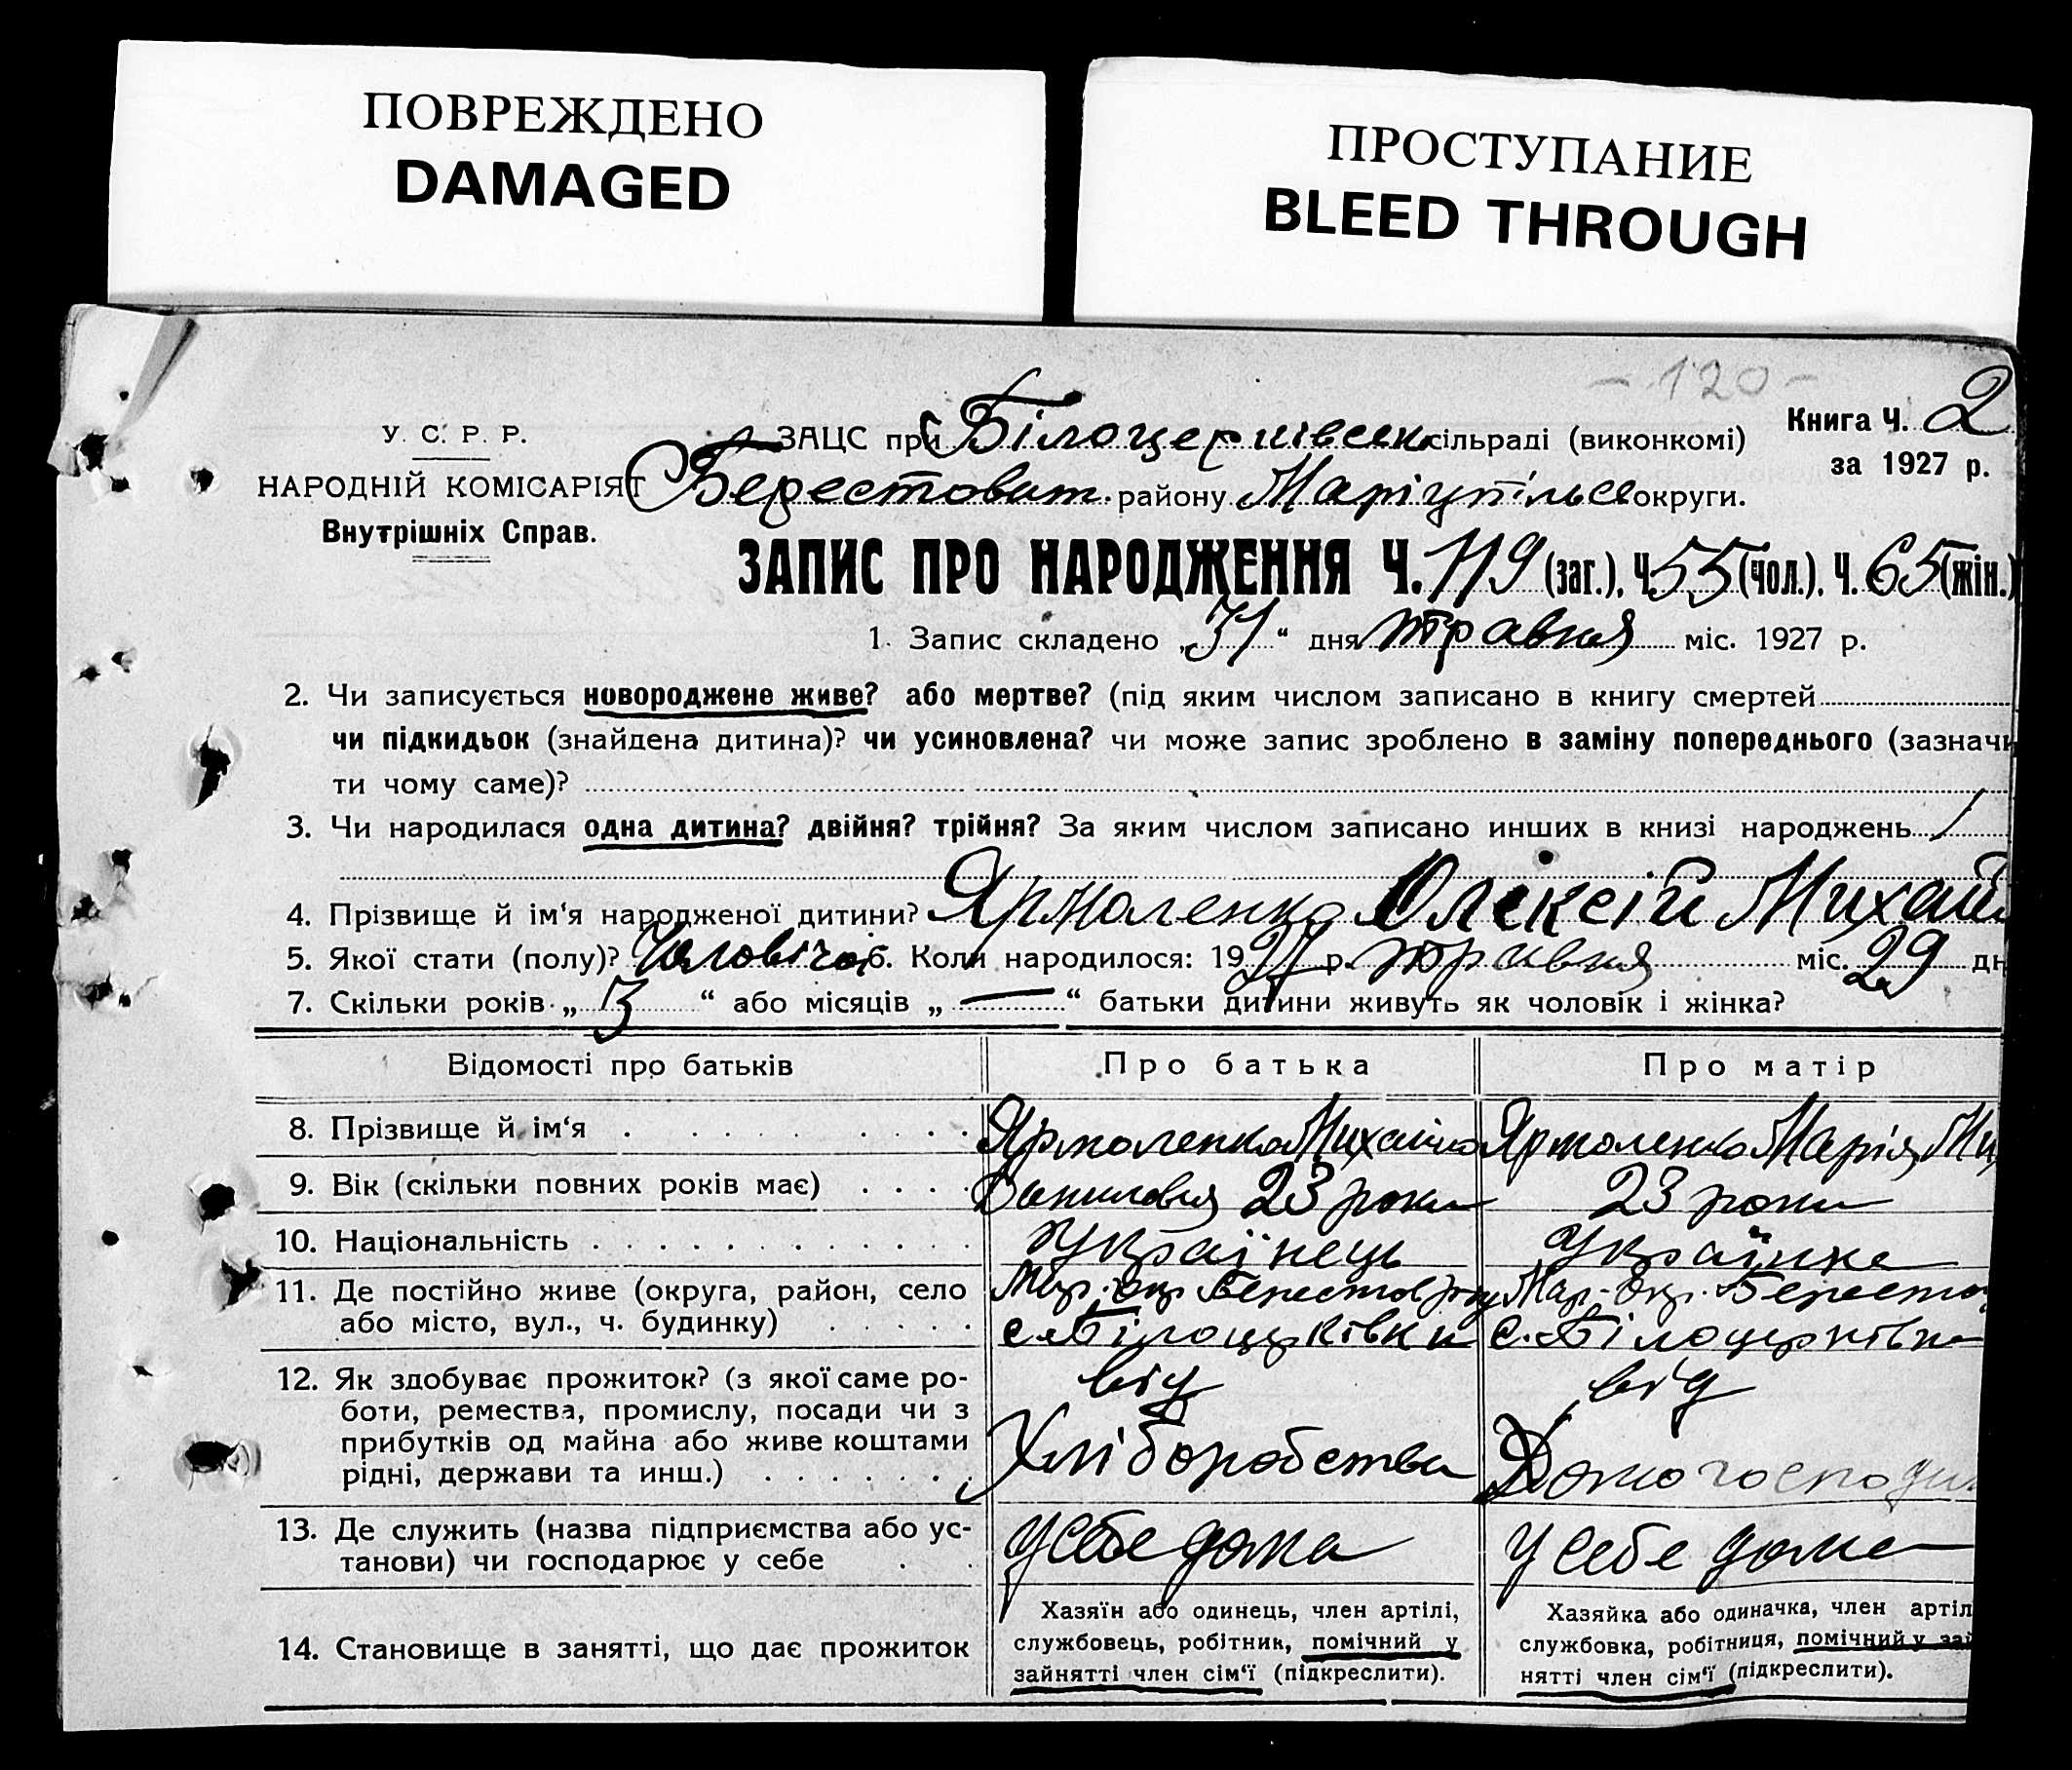 ПОВРЕЖДЕНО
DAMAGED
ПРОСТУПАНИЕ
BLEED THROUGH
- 120 -
Книга Ч. 2
за 1927 р.
У. С. Р. Р.
НАРОДНІЙ КОМІСАРІЯТ
Внутрішніх Справ.
ЗАЦС при Білоцерківськ сільраді (виконкомі)
Берестоват. району Маріупільсь округи.
ЗАПИС ПРО НАРОДЖЕННЯ Ч. 119 (заг.), Ч. 55 (чол.), Ч. 65 (жін.)
1. Запис складено „31“ дня травня міс. 1927 р.
2. Чи записується новороджене живе? або мертве? (під яким числом записано в книгу смертей
чи підкидьок (знайдена дитина)? чи усиновлена? чи може запис зроблено в заміну попереднього (зазначи
ти чому саме)?
3. Чи народилася одна дитина? двійня? трійня? За яким числом записано инших в книзі народжень /
4. Прізвище й ім‘я народженої дитини? Ярмоленко Олексій Михай
5. Якої стати (полу)? Чоловічої 6. Коли народилося: 1927 р. травня міс. 29 дн
7. Скільки років „ 3 “ або місяців „ — “ батьки дитини живуть як чоловік і жінка?
Відомості про батьків Про батька Про матір
8. Прізвище й ім‘я Ярмоленко Михайло Ярмоленко Марія Ми
9. Вік (скільки повних років має) Данилович 23 роки 23 роки
10. Національність Українець Українка
11. Де постійно живе (округа, район, село Мар. окр. Берестов р-ну Мар. окр. Бересто
або місто, вул., ч. будинку) с. Білоцерківки с. Білоцерківка
12. Як здобуває прожиток? (з якої саме ро- від від
боти, ремества, промислу, посади чи з
прибутків од майна або живе коштами Хліборобства Домогосподин
рідні, держави та инш.)
13. Де служить (назва підприємства або ус- У себе дома У себе дома
танови) чи господарює у себе
14. Становище в занятті, що дає прожиток
Хазяїн або одинець, член артілі,
службовець, робітник, помічний у
зайнятті член сім‘ї (підкреслити).
Хазяйка або одиначка, член артіл
службовка, робітниця, помічний у зай
нятті член сім‘ї (підкреслити).